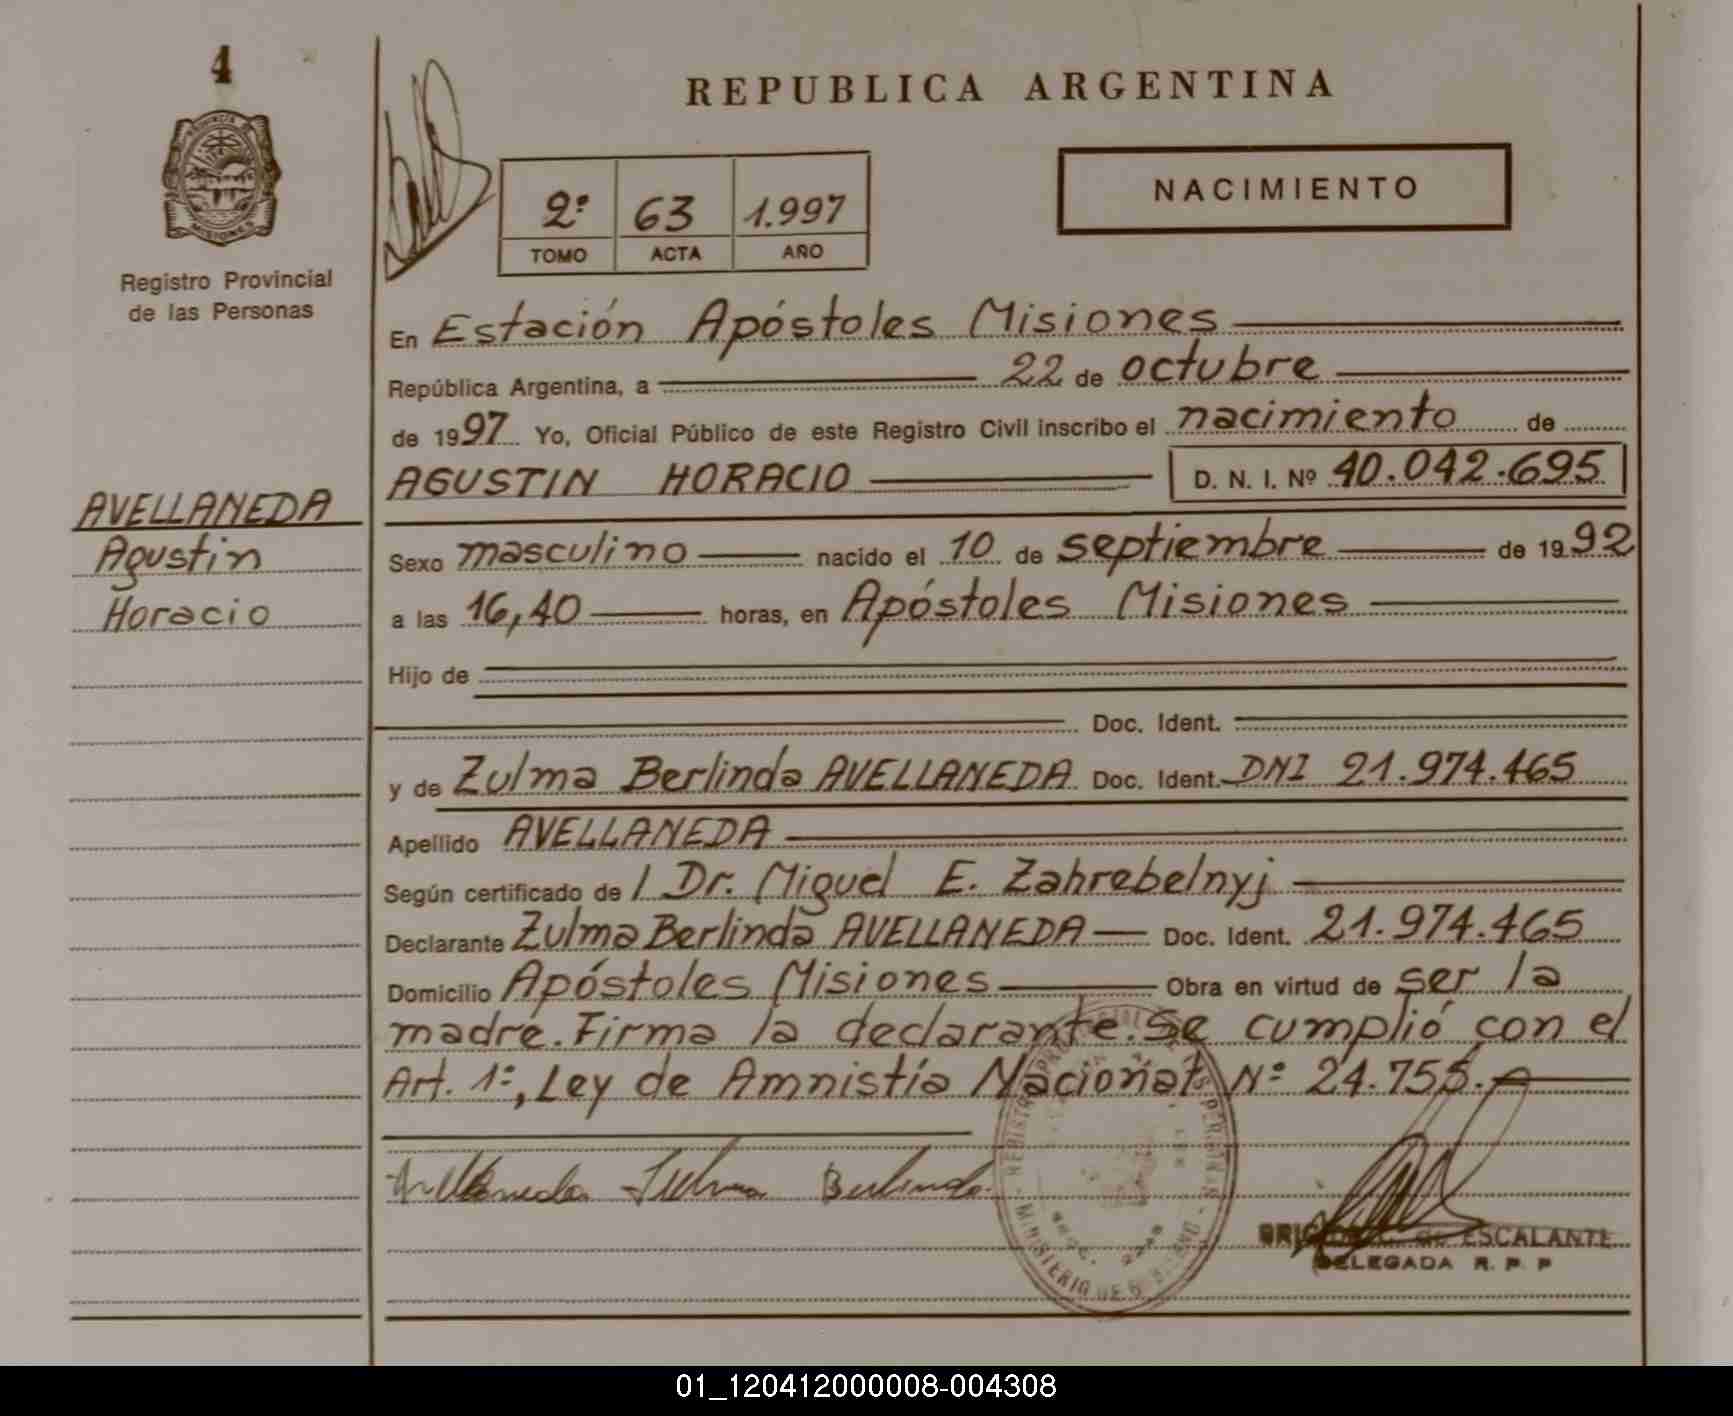 4
PROVINCIA DE
MISIONES
Registro Provincial
de las Personas
REPUBLICA ARGENTINA
2º 63 1.997
TOMO ACTA AÑO
NACIMIENTO
En Estación Apóstoles Misiones
República Argentina, a 22 de octubre
de 1997 Yo, Oficial Público de este Registro Civil inscribo el nacimiento de
AGUSTIN HORACIO D. N. I. Nº 40.042.695
AVELLANEDA
Agustin
Horacio
Sexo masculino nacido el 10 de septiembre de 1992
a las 16,40 horas, en Apóstoles Misiones
Hijo de
Doc. Ident.
y de Zulma Berlinda AVELLANEDA Doc. Ident. DNI 21.974.465
Apellido AVELLANEDA
Según certificado de / Dr. Miguel E. Zahrebelnyj
Declarante Zulma Berlinda AVELLANEDA Doc. Ident. 21.974.465
Domicilio Apóstoles Misiones Obra en virtud de ser la
madre. Firma la declarante. Se cumplió con el
Art. 1º, Ley de Amnistía Nacional Nº 24.755.
Avellaneda Zulma Berlinda
de ESCALANTE
DELEGADA R. P. P
01_120412000008-004308